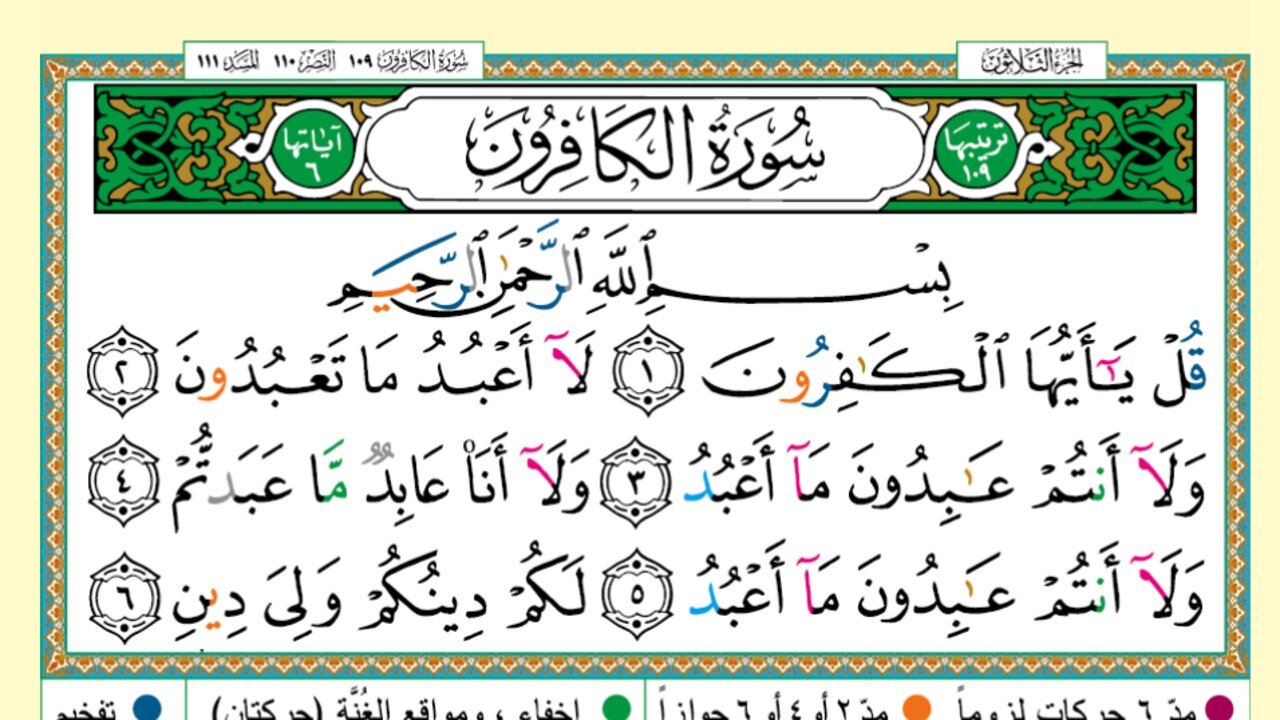 الجزء الثلاثون
سورة الكافرون ١٠٩ النصر ١١٠ المسد ١١١
ترتيبها ١٠٩ سُورَةُ الكَافِرُونَ آياتها ٦
بِسْمِ ٱللَّهِ ٱلرَّحْمَٰنِ ٱلرَّحِيمِ
قُلْ يَٰٓأَيُّهَا ٱلْكَٰفِرُونَ ١ لَآ أَعْبُدُ مَا تَعْبُدُونَ ٢
وَلَآ أَنتُمْ عَٰبِدُونَ مَآ أَعْبُدُ ٣ وَلَآ أَنَا۠ عَابِدٌ مَّا عَبَدتُّمْ ٤
وَلَآ أَنتُمْ عَٰبِدُونَ مَآ أَعْبُدُ ٥ لَكُمْ دِينُكُمْ وَلِىَ دِينِ ٦
مدّ ٦ حركات لزوماً مدّ ٢ أو ٤ أو ٦ جوازاً إخفاء ، ومواقع الغُنَّة (حركتان) تفخيم